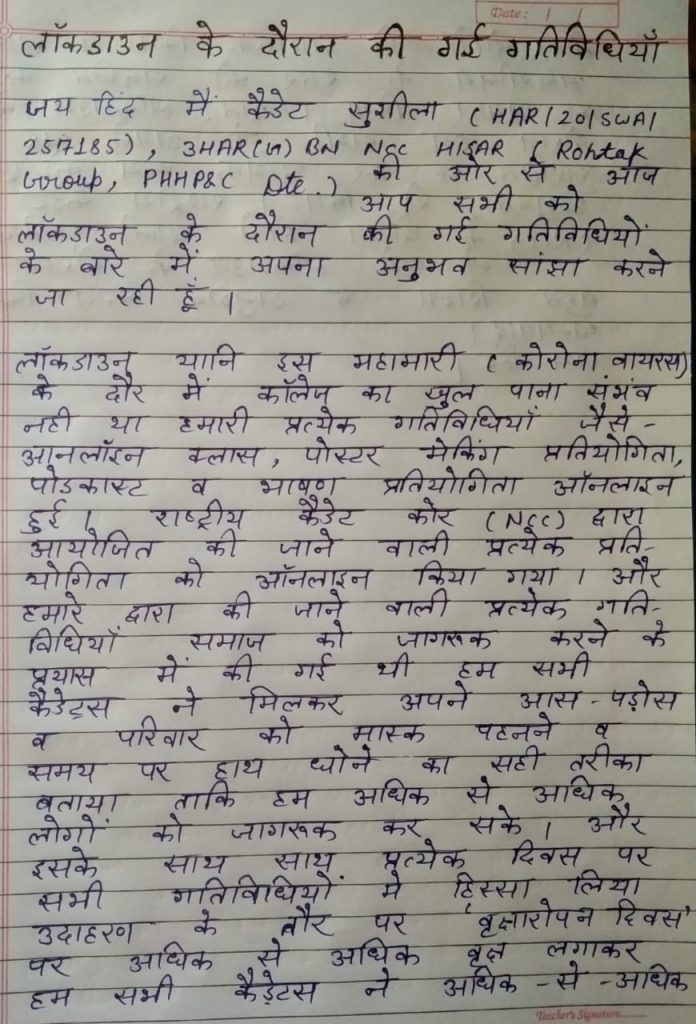 Date: / /
लॉकडाउन के दौरान की गई गतिविधियाँ
जय हिंद मैं कैडेट सुशीला (HAR/20/SWA/
257185), 3HAR(n) BN NCC HISAR (Rohtak
Group, PHHP&C Dte.) की ओर से आज
आप सभी को
लॉकडाउन के दौरान की गई गतिविधियों
के बारे में अपना अनुभव सांझा करने
जा रही हूँ ।
लॉकडाउन यानि इस महामारी (कोरोना वायरस)
के दौर में कॉलेज का खुल पाना संभव
नही था हमारी प्रत्येक गतिविधियाँ जैसे-
आनलॉइन क्लास, पोस्टर मेकिंग प्रतियोगिता,
पोडकास्ट व भाषण प्रतियोगिता ऑनलाइन
हुई । राष्ट्रीय कैडेट कोर (NCC) द्वारा
आयोजित की जाने वाली प्रत्येक प्रति-
योगिता को ऑनलाइन किया गया । और
हमारे द्वारा की जाने वाली प्रत्येक गति-
विधियाँ समाज को जागरूक करने के
प्रयास में की गई थी हम सभी
कैडेट्स ने मिलकर अपने आस-पड़ोस
व परिवार को मास्क पहनने व
समय पर हाथ धोने का सही तरीका
बताया ताकि हम अधिक से अधिक
लोगों को जागरूक कर सके । और
इसके साथ साथ प्रत्येक दिवस पर
सभी गतिविधियों मे हिस्सा लिया
उदाहरण के तौर पर 'वृक्षारोपन दिवस'
पर अधिक से अधिक वृक्ष लगाकर
हम सभी कैड़ेटस ने अधिक-से-अधिक
Teacher's Signature